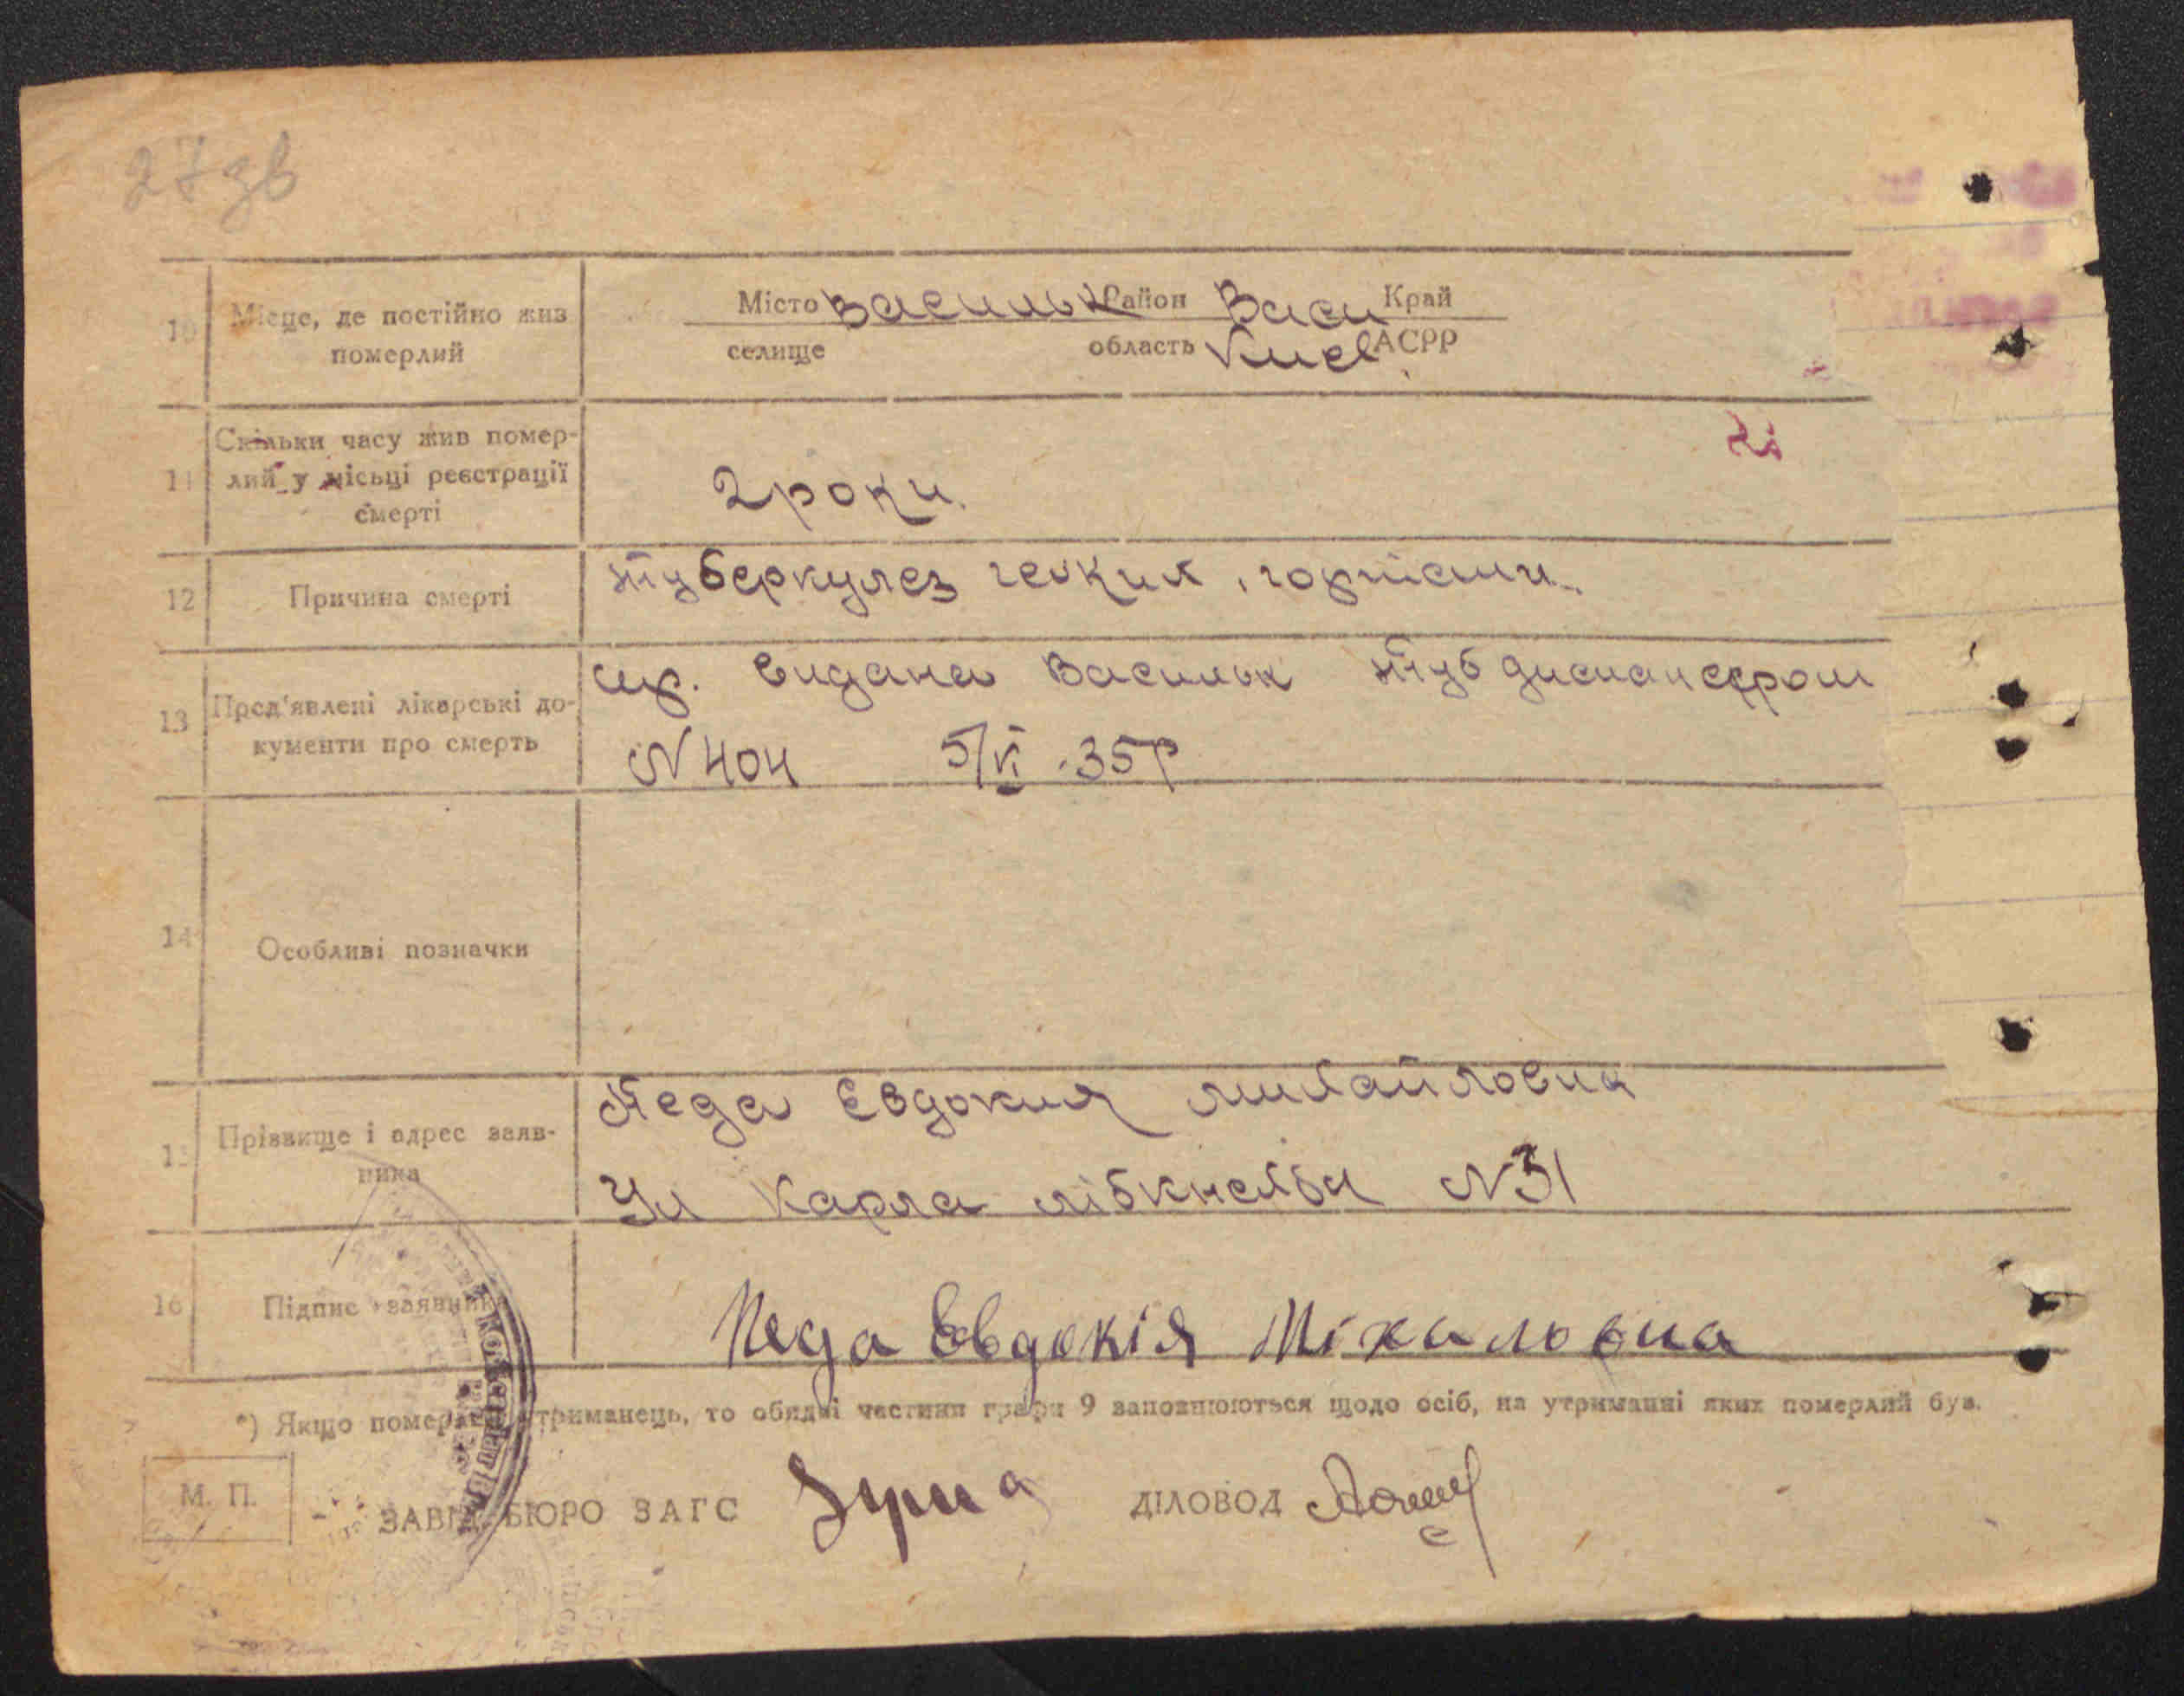 27зв
10 Місце, де постійно жив померлий
Місто Васильк Район Васи Край
селище область Киев АСРР
11 Скільки часу жив помер-
лий у місьці реєстрації
смерті
2 роки.
12 Причина смерті
туберкулез легких, гортани.
13 Пред'явлені лікарські до-
кументи про смерть
видана Васильк туб диспансером
N 404 5/VI 35р
14 Особливі позначки
15 Прізвище і адрес заяв-
ника
Педа Евдокия михайловна
Ул Карла лібкнехта N31
16 Підпис заявника
Педа Евдокія Міхаловна
*) Якщо померлий утриманець, то обидві частини графи 9 заповнюються щодо осіб, на утриманні яких померлий був.
М. П.
ЗАВІД. БЮРО ЗАГС ДІЛОВОД